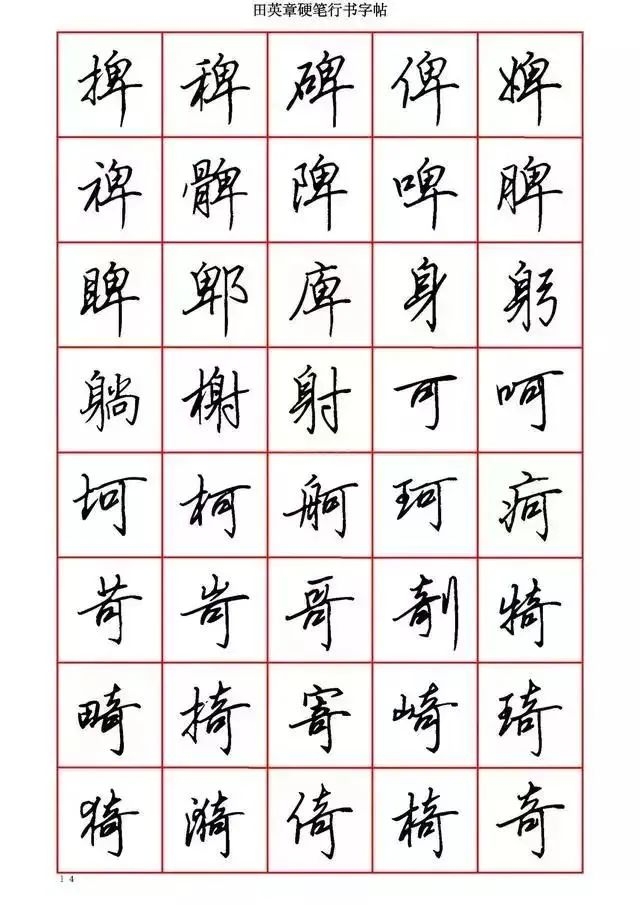 田英章硬笔行书字帖
捭稗碑俾婢
裨髀陴啤脾
睥郫庳身躬
躺榭射可呵
坷柯舸珂疴
苛岢哥剞犄
畸掎寄崎琦
猗漪倚椅奇
14